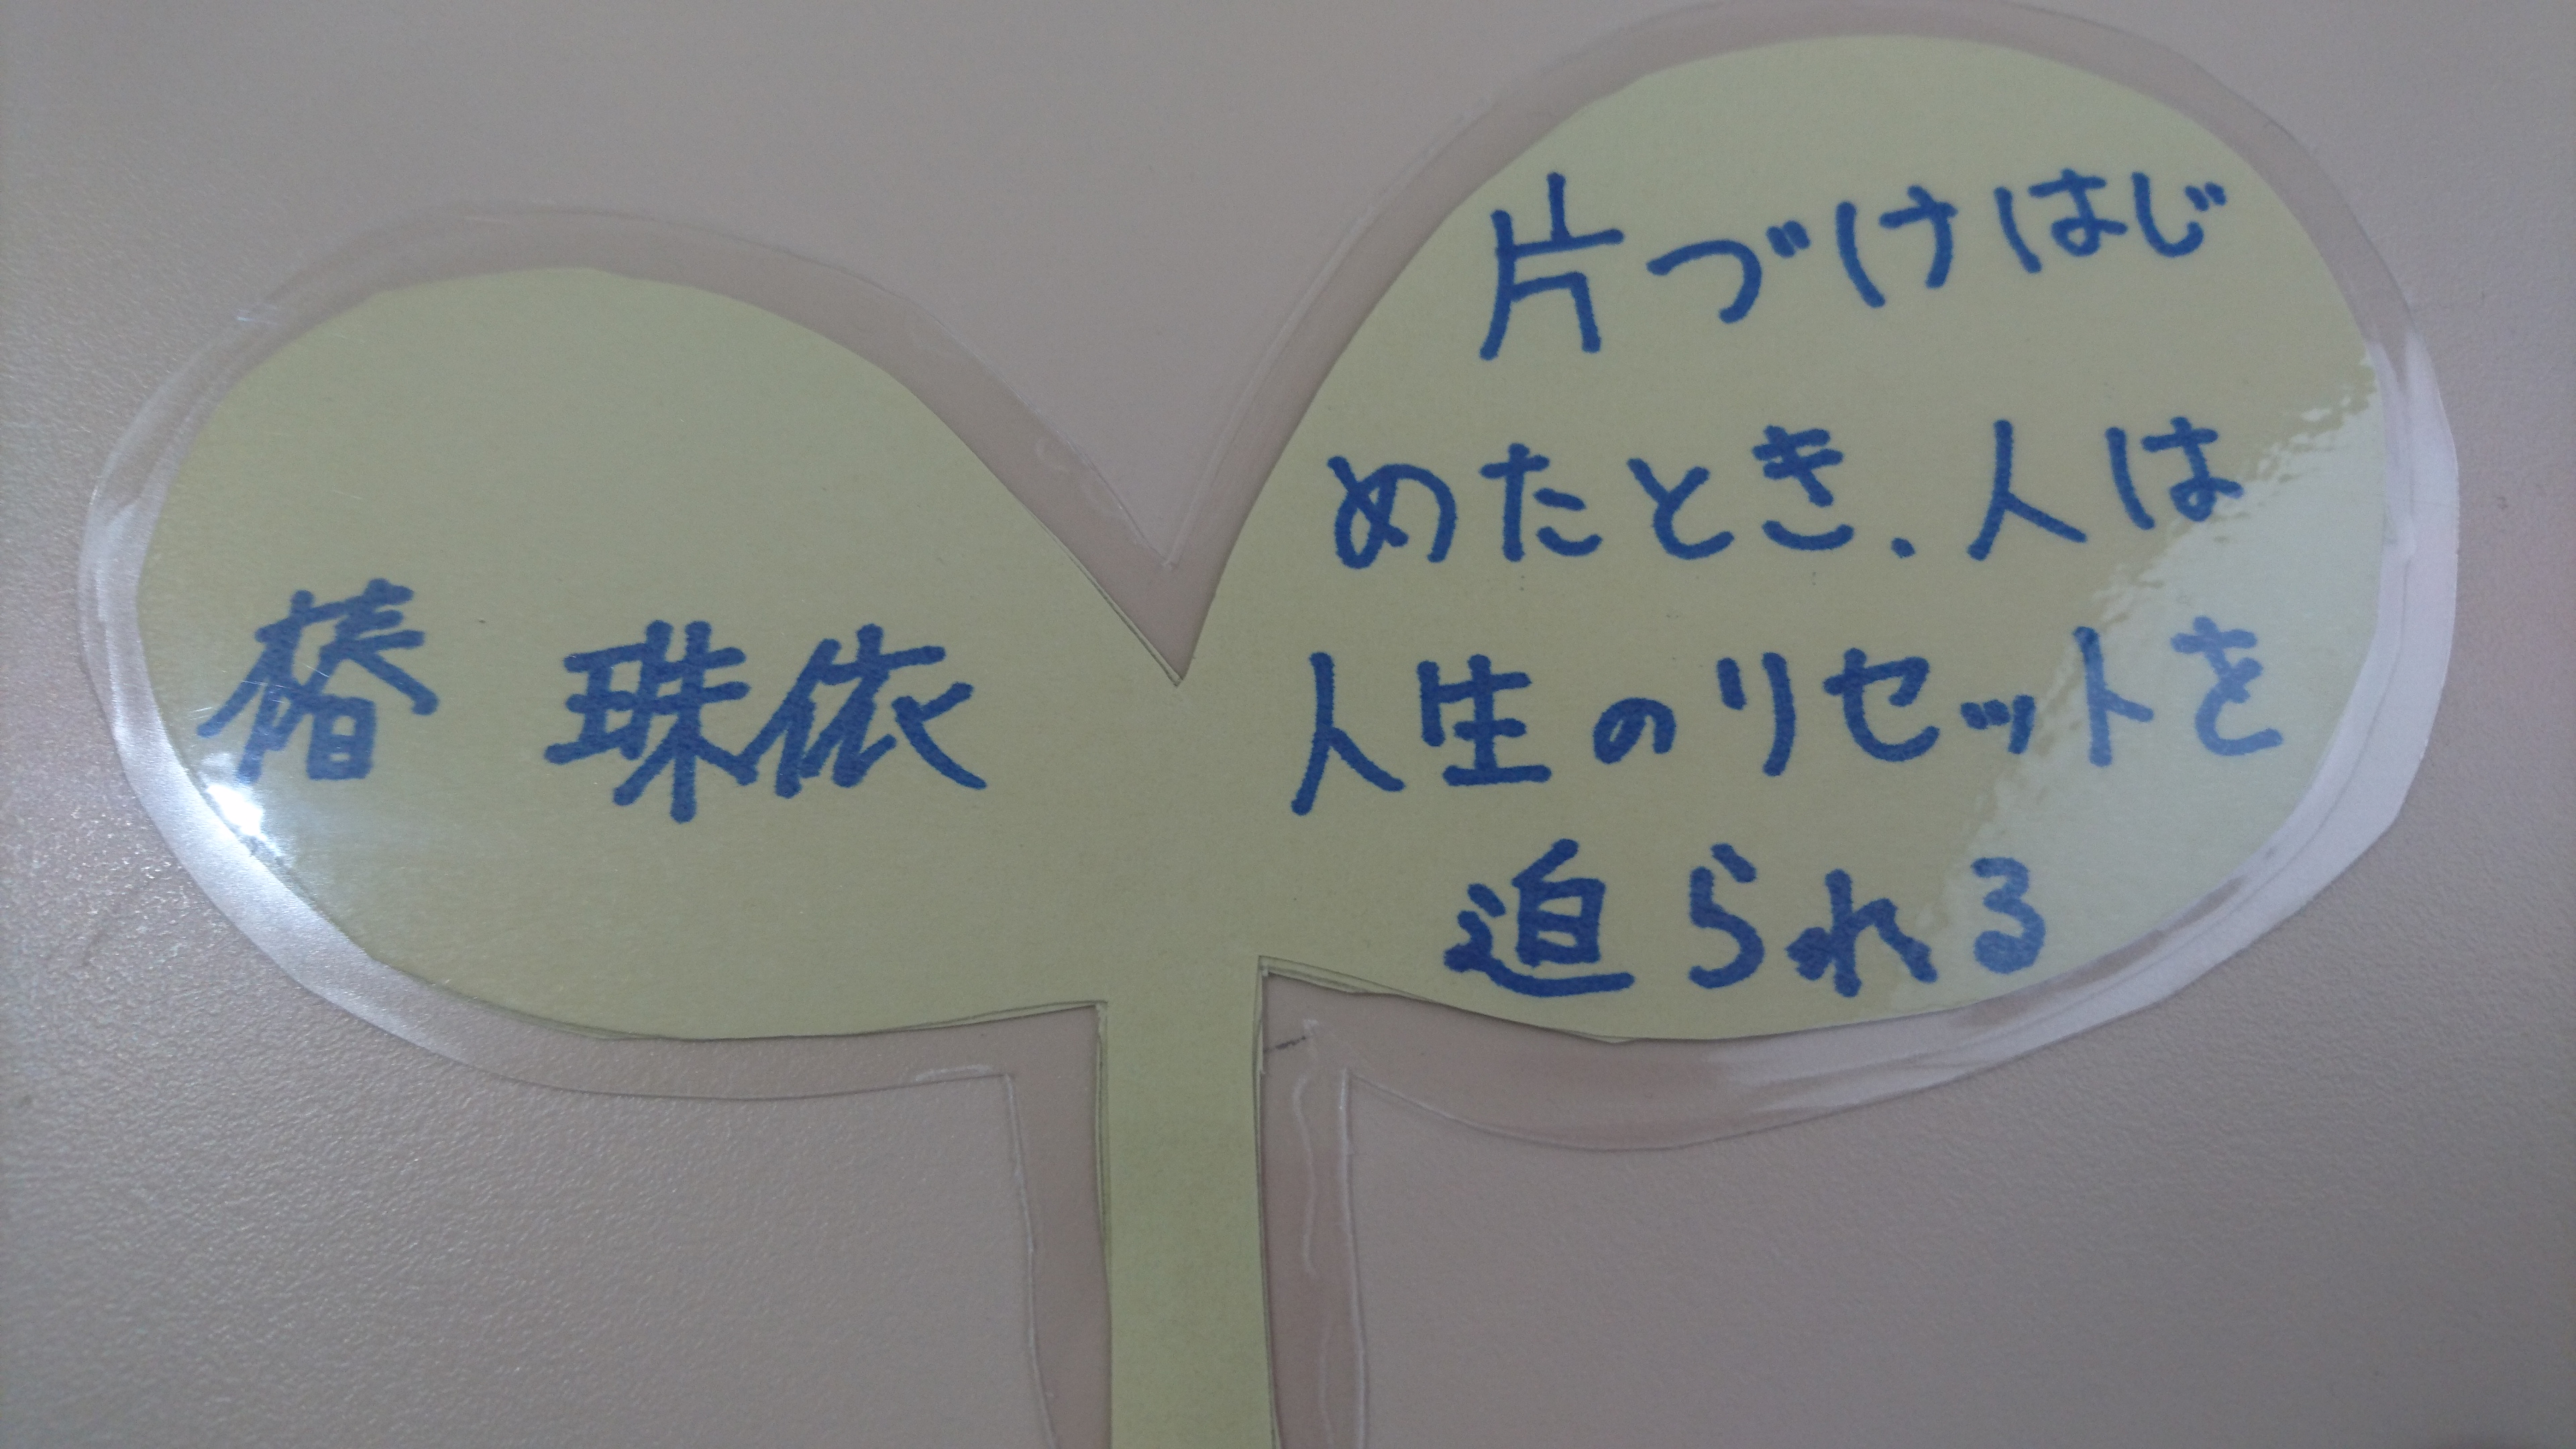 椿 珠依
片づけはじ
めたとき、人は
人生のリセットを
迫られる